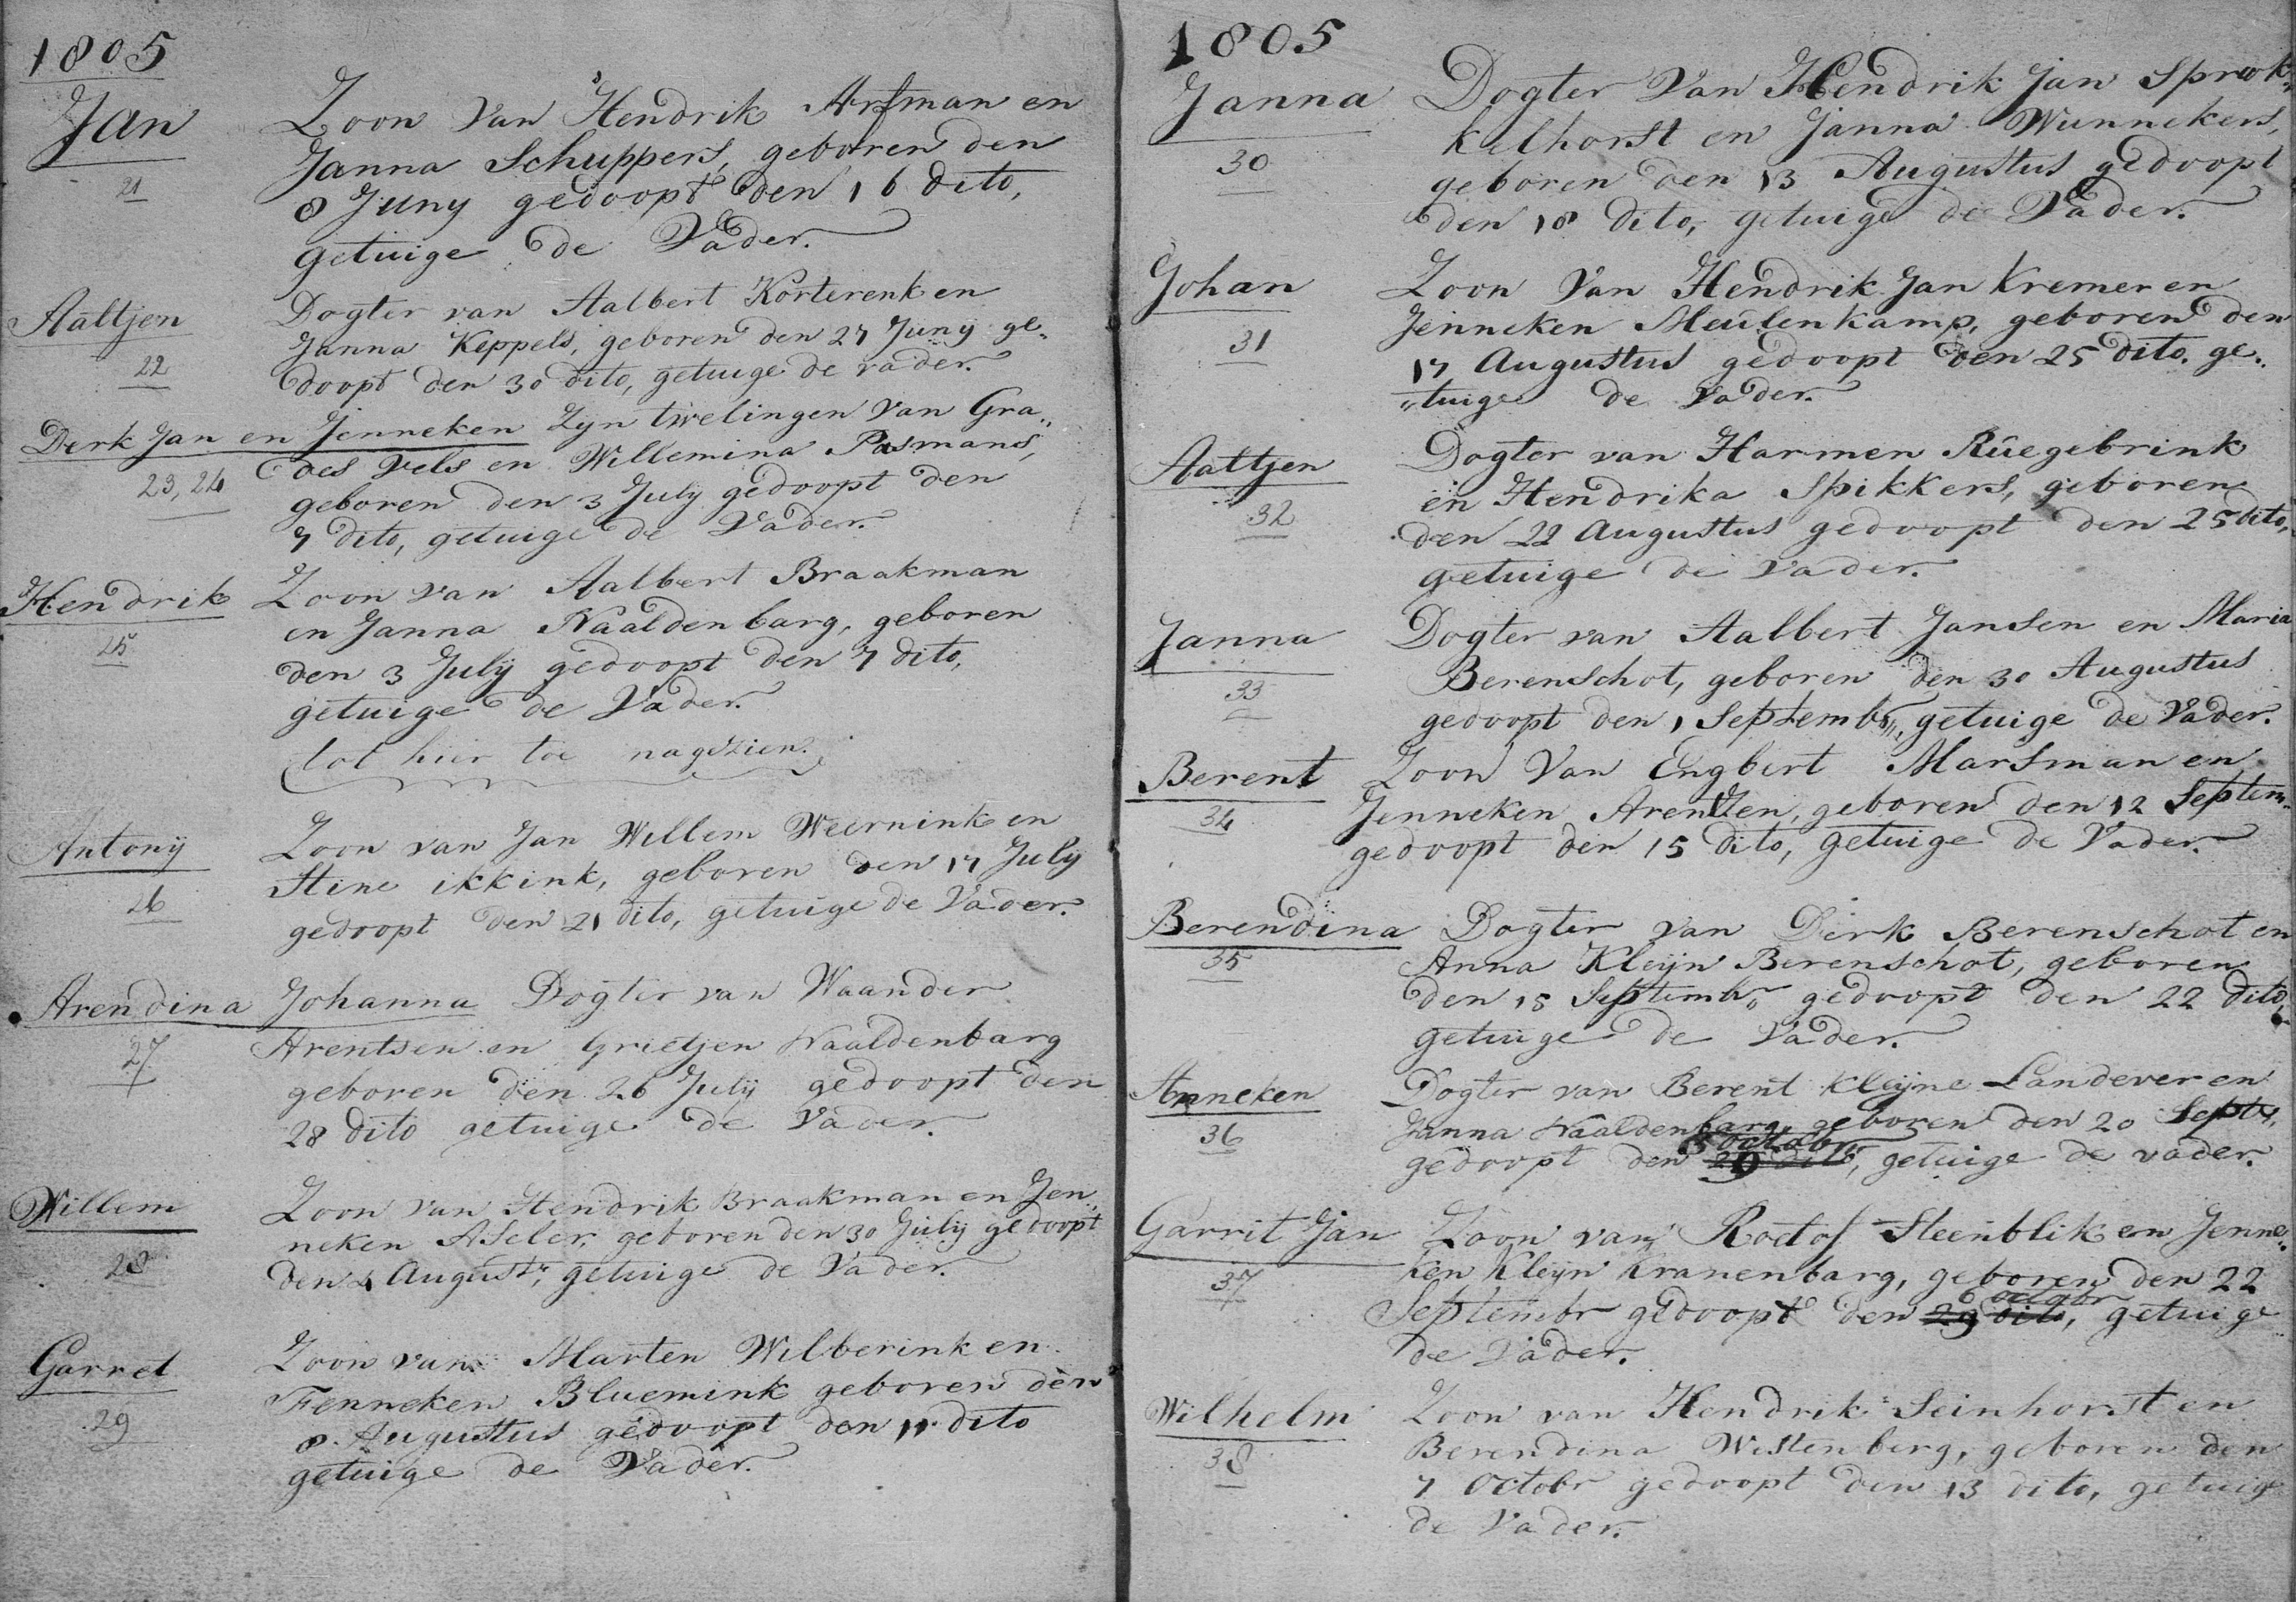 1805
Jan Zoon van Hendrik Arfman en
21 Janna Schuppers, geboren den
8 Juny gedoopt den 16 dito,
getuige de Vader.
Aaltjen Dogter van Aalbert Korterenk en
22 Janna Keppels, geboren den 27 Juny ge„
doopt den 30 dito, getuige de vader.
Derk Jan en Jenneken Zyn twelingen van Gra„
23, 24 des Vels en Willemina Pasmans,
geboren den 3 July gedoopt den
7 dito, getuige de Vader.
Hendrik Zoon van Aalbert Braakman
25 en Janna Naaldenbarg, geboren
den 3 Julij gedoopt den 7 dito,
getuige de Vader.
tot hier toe nagezien.
Antonij Zoon van Jan Willem Weernink en
26 Stine ikkink, geboren den 17 July
gedoopt den 21 dito, getuige de Vader.
Arendina Johanna Dogter van Waander
27 Arentsen en Grietjen Naaldenbarg
geboren den 26 Julij gedoopt den
28 dito getuige de Vader.
Willem Zoon van Hendrik Braakman en Jen„
28 neken Aseler, geboren den 30 Julij gedoopt
den 4 Augustr, getuige de Vader.
Garret Zoon van Marten Wilberink en
29 Fenneken Bluemink geboren den
8 Augustus gedoopt den 11 dito
getuige de Vader.
1805
Janna Dogter Van Hendrik Jan Sprok„
30 kelhorst en Janna Wunnekers,
geboren den 13 Augustus gedoopt
den 18 dito, getuige de Vader.
Johan Zoon Van Hendrik Jan Kremer en
31 Jenneken Meulenkamp, geboren den
17 Augustus gedoopt den 25 dito. ge„
„tuige de Vader.
Aaltjen Dogter van Harmen Rûegebrink
32 en Hendrika Spikkers, geboren
den 22 Augustus gedoopt den 25 dito,
getuige de Vader.
Janna Dogter van Aalbert Jansen en Maria
33 Berenschot, geboren den 30 Augustus
gedoopt den 1 Septembr, getuige de Vader.
Berent Zoon Van Engbert Marsman en
34 Jenneken Arentzen, geboren den 12 Septem„
gedoopt den 15 dito, getuige de Vader.
Berendina Dogter van Derk Berenschot en
35 Anna Kleijn Berenschot, geboren
den 15 Septembr gedoopt den 22 dito,
getuige de Vader.
Anneken Dogter van Berent Kleijne Landever en
36 Janna Naaldenbarg, geboren den 20 Septr,
gedoopt den 29 dito, octobr getuige de vader.
Garrit Jan Zoon van Roelof Steenblik en Jenne„
37 ken Kleyn Kranenbarg, geboren den 22
Septembr gedoopt den 29 dito, 6 octobr getuige
de Vader.
Wilhelm Zoon van Hendrik Seinhorst en
38 Berendina Westenberg, geboren den
7 Octobr gedoopt den 13 dito, getuige
de Vader.